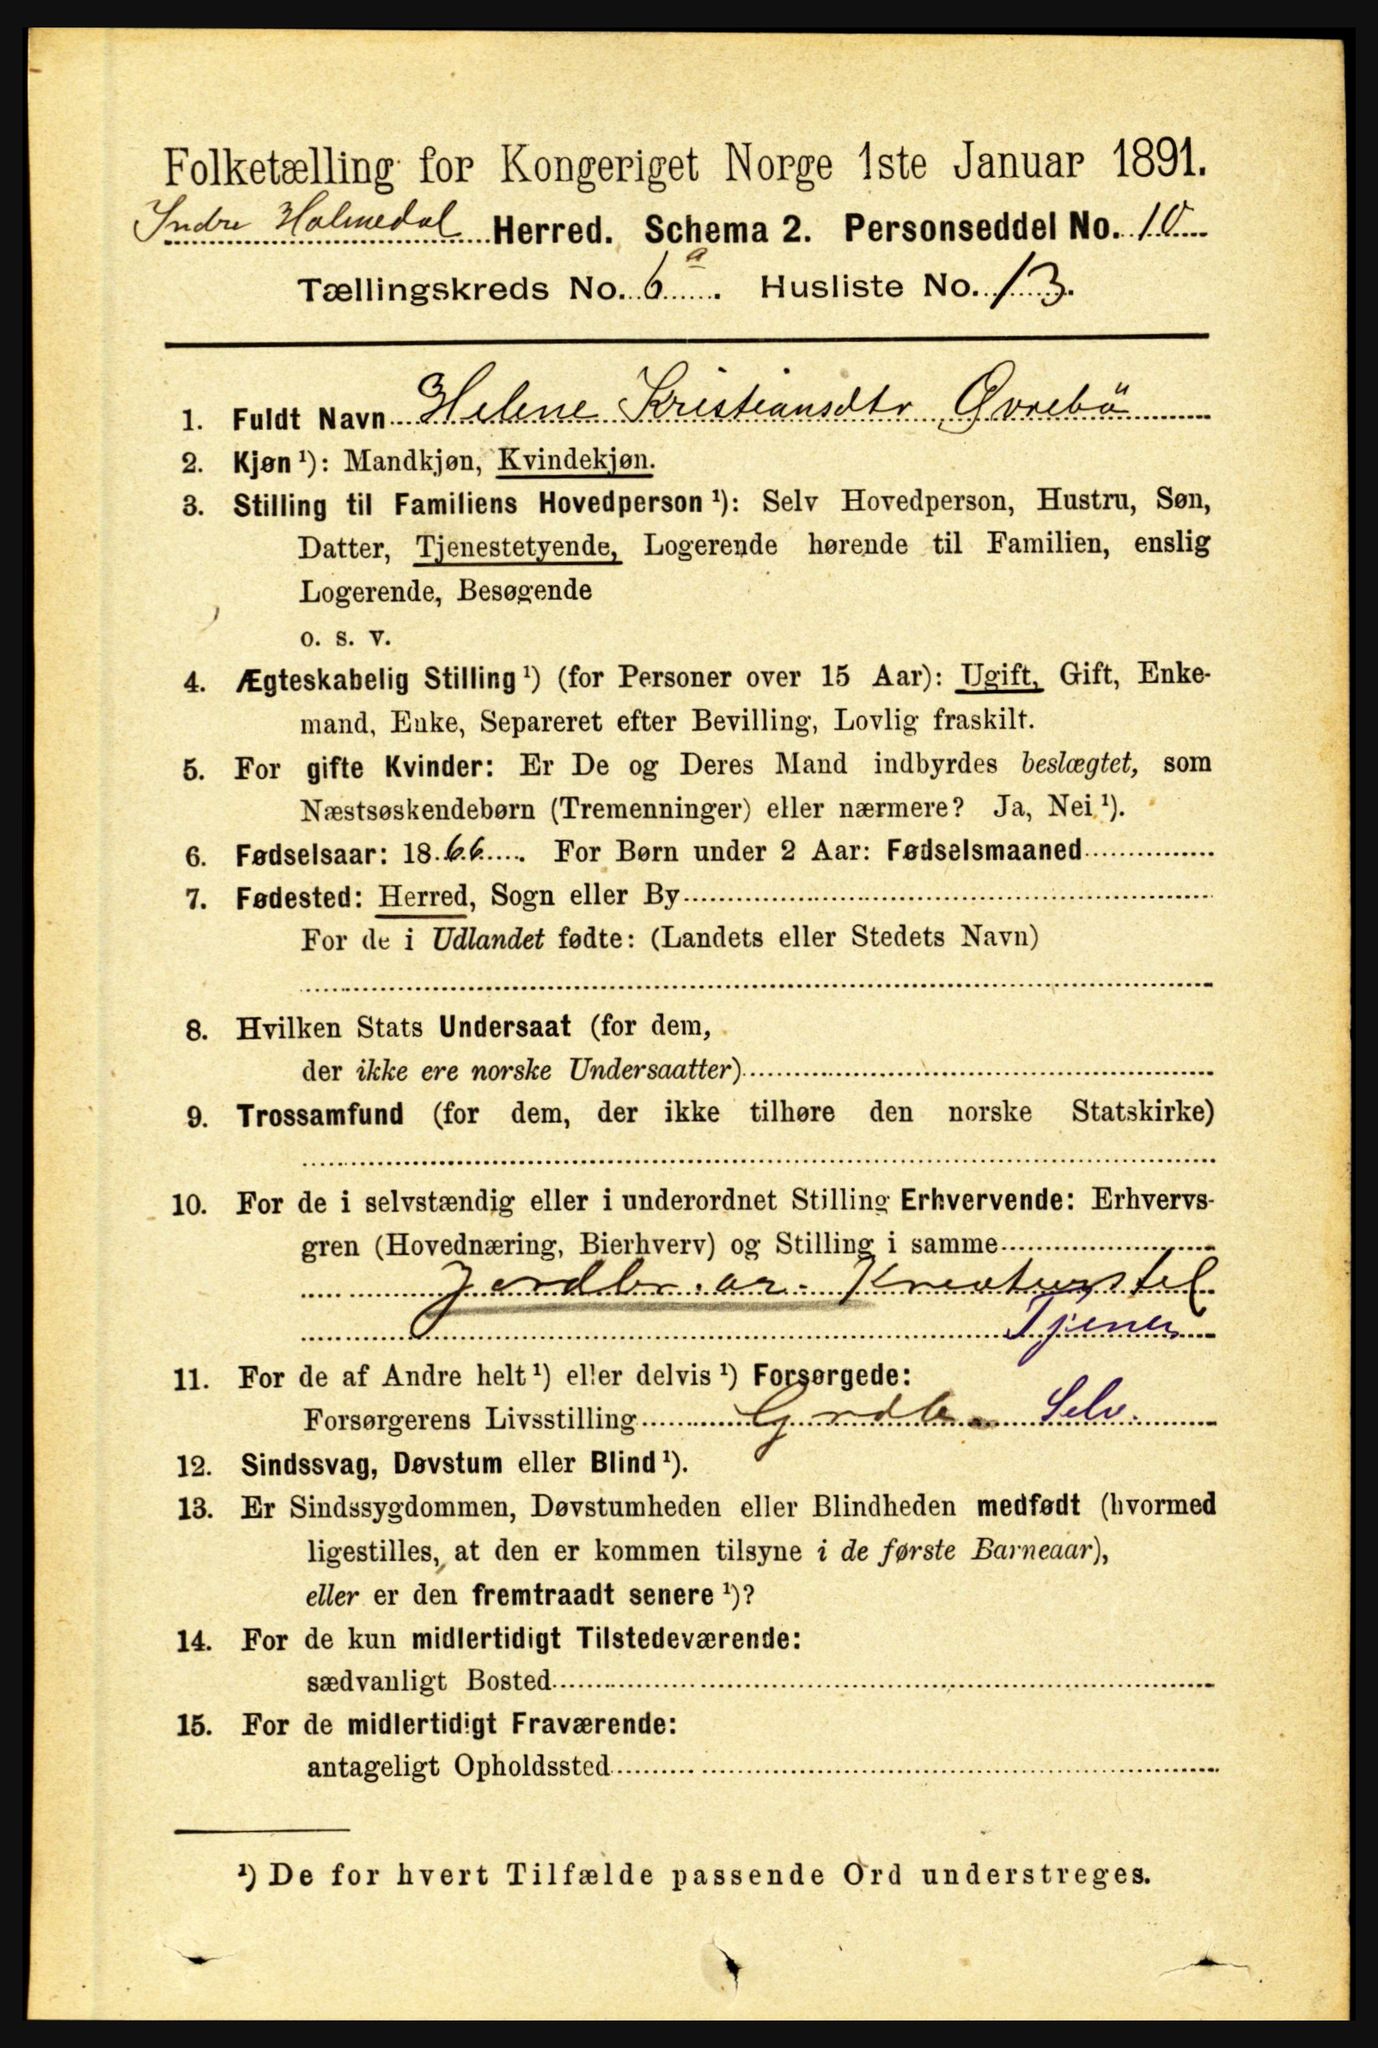 Folketælling for Kongeriget Norge 1ste Januar 1891.
Indre Holmedal Herred. Schema 2. Personseddel No. 10
Tællingskreds No. 6a. Husliste No. 13.
1. Fuldt Navn Helene Kristiansdtr Øvrebö
2. Kjøn¹): Mandkjøn, Kvindekjøn.
3. Stilling til Familiens Hovedperson¹): Selv Hovedperson, Hustru, Søn,
Datter, Tjenestetyende, Logerende hørende til Familien, enslig
Logerende, Besøgende
o. s. v.
4. Ægteskabelig Stilling¹) (for Personer over 15 Aar): Ugift, Gift, Enke-
mand, Enke, Separeret efter Bevilling, Lovlig fraskilt.
5. For gifte Kvinder: Er De og Deres Mand indbyrdes beslægtet, som
Næstsøskendebørn (Tremenninger) eller nærmere? Ja, Nei¹).
6. Fødselsaar: 1866. For Børn under 2 Aar: Fødselsmaaned
7. Fødested: Herred, Sogn eller By
For de i Udlandet fødte: (Landets eller Stedets Navn)
8. Hvilken Stats Undersaat (for dem,
der ikke ere norske Undersaatter)
9. Trossamfund (for dem, der ikke tilhøre den norske Statskirke)
10. For de i selvstændig eller i underordnet Stilling Erhvervende: Erhvervs-
gren (Hovednæring, Bierhverv) og Stilling i samme
Jordbr. Kreaturstel
Tjener
11. For de af Andre helt¹) eller delvis¹) Forsørgede:
Forsørgerens Livsstilling Selv.
12. Sindssvag, Døvstum eller Blind¹).
13. Er Sindssygdommen, Døvstumheden eller Blindheden medfødt (hvormed
ligestilles, at den er kommen tilsyne i de første Barneaar),
eller er den fremtraadt senere¹)?
14. For de kun midlertidigt Tilstedeværende:
sædvanligt Bosted
15. For de midlertidigt Fraværende:
antageligt Opholdssted
¹) De for hvert Tilfælde passende Ord understreges.